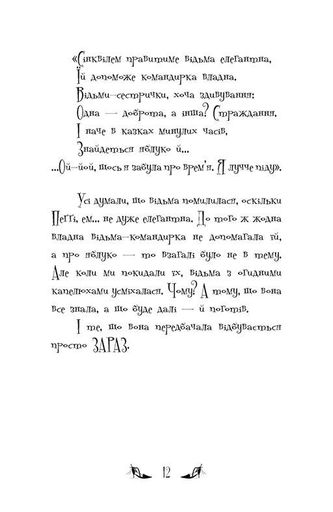 «Сінквілем правитиме відьма елегантна.
Їй допоможе командирка владна.
Відьми-сестрички, хоча здивування:
Одна — доброта, а інша? Страждання.
І наче в казках минулих часів,
Знайдеться яблуко й...
...Ой-йой, щось я забула про врем'я. Я лучче піду».
Усі думали, що відьма помилилася, оскільки
Пеґґі, ем... не дуже елегантна. До того ж жодна
владна відьма-командирка не допомагала їй,
а про яблуко — то взагалі було не в тему.
Але коли ми покидали їх, відьма з огидними
капелюхами усміхалася. Чому? А тому, що вона
все знала, а що буде далі — й поготів.
І те, що вона передбачала відбувається
просто ЗАРАЗ.
12